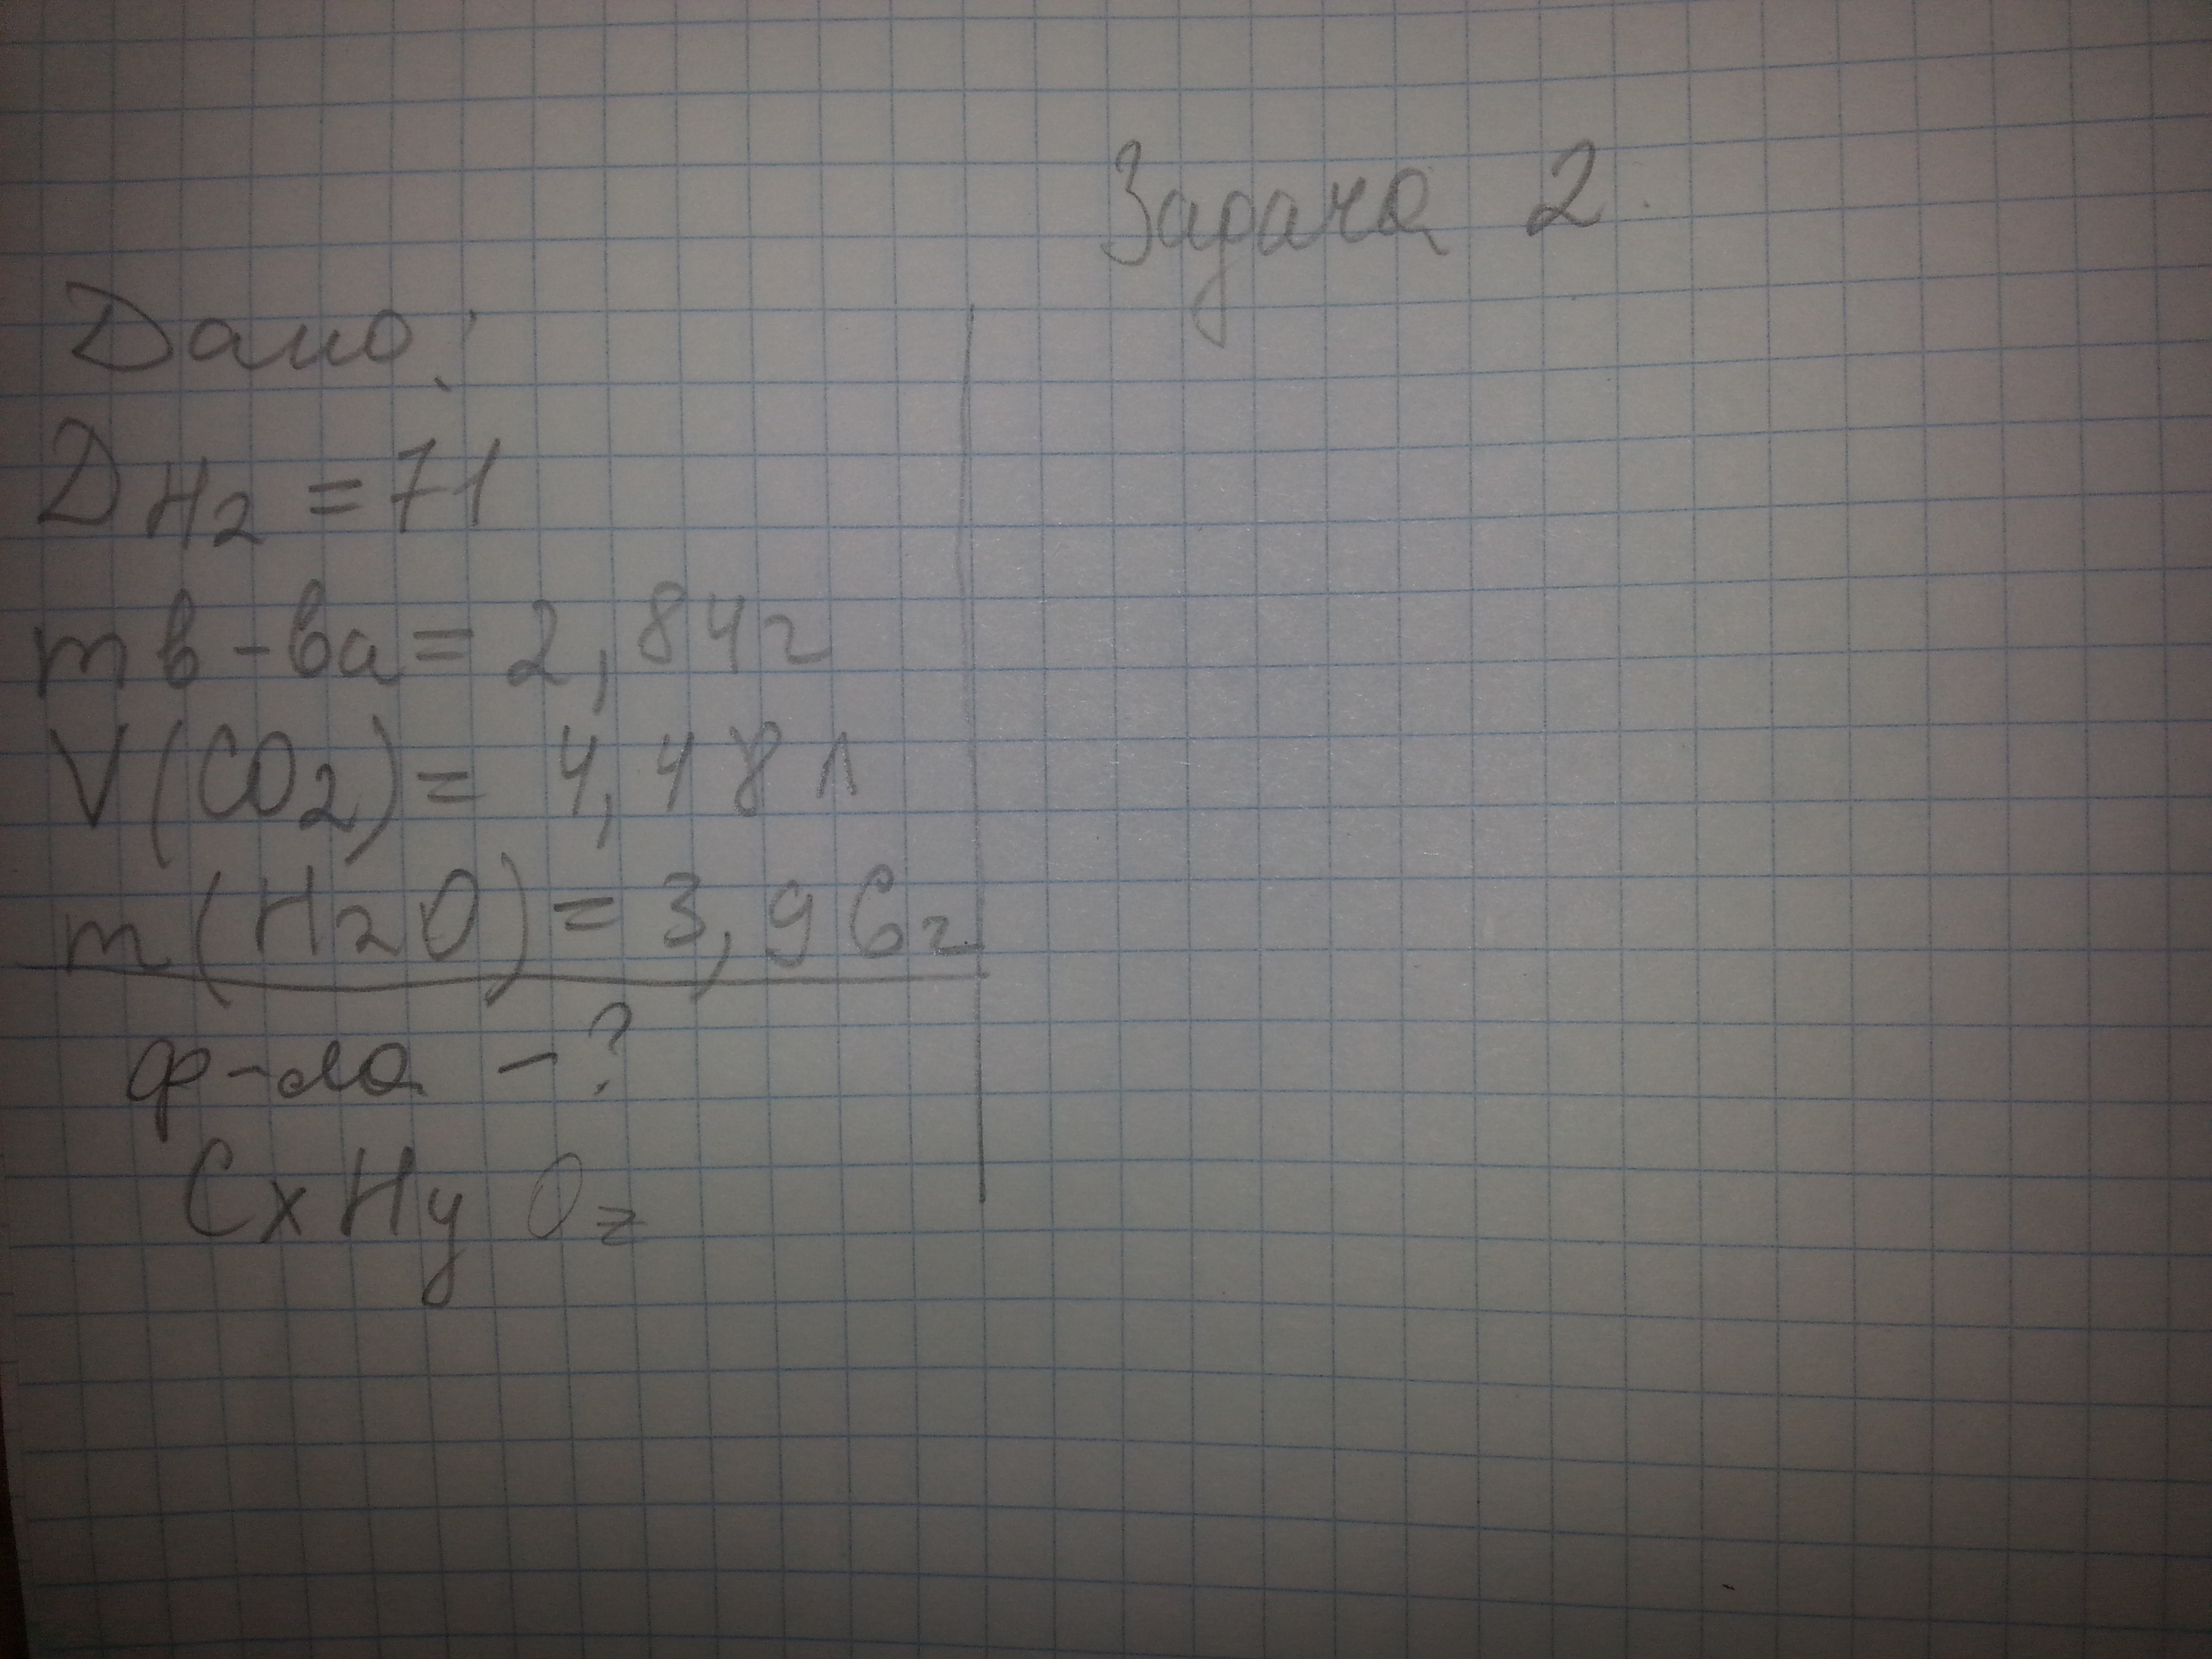 Задача 2.
Дано:
DH2 = 71
m в-ва = 2,84г
V(CO2) = 4,48 л
m(H2O) = 3,96г
ф-ла - ?
CxHyOz